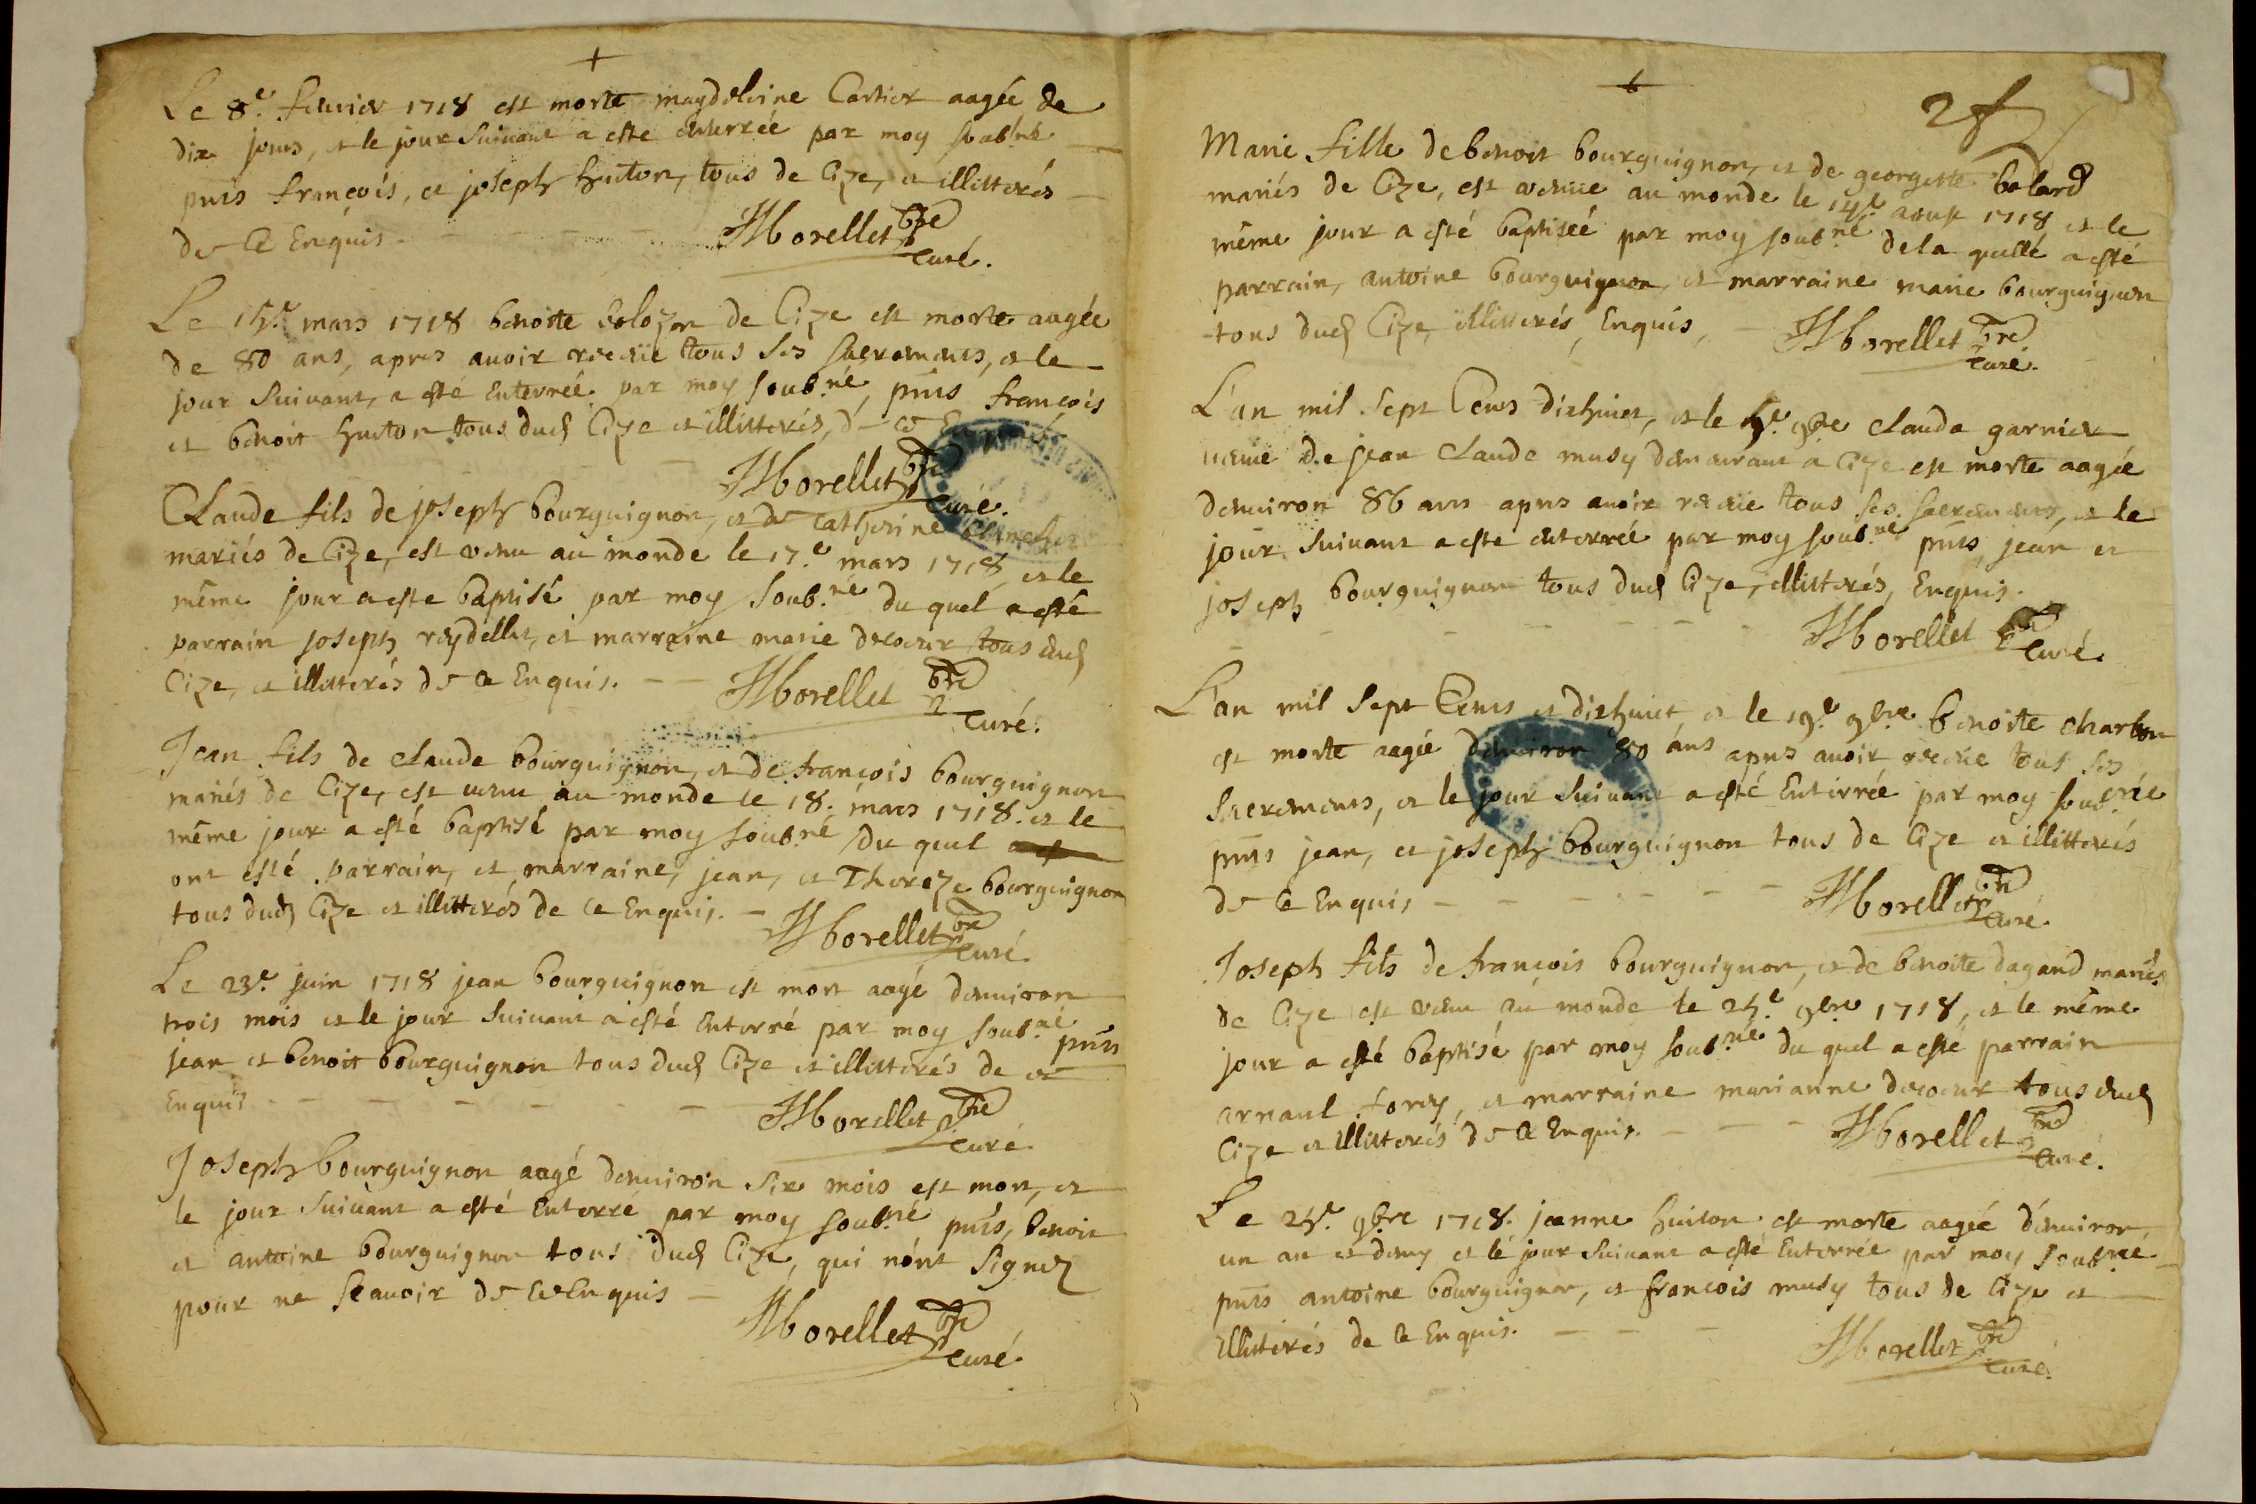 Le 8e. feburier 1718 est morte magdeleine Cartier aagée de
dix jours, et le jour suivant a esté enterrée par moy soubné
pnts françois, et joseph huiton, tous de Cize, et illitterés
de ce Enquis.
JMorellet pbre
curé.
Le 15e. mars 1718 benoite bolozon de Cize est morte aagée
de 80 ans, apres avoir receüe tous ses sacremens, et le
jour suivant, a esté enterrée par moy soub.né, pnts françois
et benoit huiton tous dud Cize et illitterés, de ce
JMorellet pbre
curé.
Claude fils de joseph bourguignon, et de Catherine
mariés de Cize, est venu au monde le 17.e mars 1718, et le
même jour a esté baptisé par moy soub.né du quel a esté
parrain joseph reydellet, et marraine marie decoeur tous dud
Cize, et illitterés de ce Enquis.
JMorellet pbre
curé.
Jean fils de claude bourguignon, et de françois bourguignon
mariés de Cize, est venu au monde le 18. mars 1718. et le
même jour a esté baptisé par moy soub.né du quel
ont esté parrain, et marraine, jean, et Thereze bourguignon
tous dud Cize et illitterés de ce Enquis.
JMorellet pbre
curé
Le 23e. juin 1718 jean bourguignon est mort aagé denviron
trois mois et le jour suivant a esté enterré par moy soub.né pnts
jean et benoit bourguignon tous dud Cize et illitterés de ce
enquis
JMorellet pbre
curé
Joseph bourguignon aagé denviron six mois est mort, et
le jour suivant a esté enterré par moy soub.né pnts, benoit
et antoine bourguignon tous dud Cize, qui n'ont signez
pour ne sçavoir de ce Enquis
JMorellet pbre
curé.
2f
Marie fille de benoit bourguignon, et de georgette balard
mariés de Cize, est venüe au monde le 14e. aoust 1718 et le
même jour a esté baptiseé par moy soub.né de la quelle a esté
parrain, antoine bourguignon, et marraine marie bourguignon
tous dud Cize, illitterés, Enquis,
JMorellet pbre.
curé.
L'an mil sept Cens dixhuict, et le 5e. 9bre clauda garnier
veuve de jean claude musy demeurant a Cize est morte aagée
denviron 86 ans apres avoir receüe tous ses sacremens, et le
jour suivant a esté enterrée par moy soub.né pnts jean et
joseph bourguignon tous dud Cize, illitterés, Enquis.
JMorellet pbre
curé.
L'an mil sept Cens et dixhuict, et le 19e. 9bre benoite charbon
est morte aagée denviron 80 ans apres avoir receüe tous ses
sacremens, et le jour suivant a esté enterrée par moy soub.né
pnts jean, et joseph bourguignon tous de Cize et illitterés
de ce Enquis
JMorellet pbre
curé
Joseph fils de françois bourguignon, et de benoite dagand mariés
de Cize est venu au monde le 25e. 9bre 1718, et le même
jour a esté baptisé par moy soub.né du quel a esté parrain
arnaul forey, et marraine marianne decoeur tous dud
Cize et illitterés de ce Enquis.
JMorellet pbre
curé.
Le 25e. 9bre 1718. jeanne huiton est morte aagée d'environ
un an et demy et le jour suivant a esté enterrée par moy soub.né
pnts antoine bourguignon, et françois musy tous de Cize et
illitterés de ce Enquis.
JMorellet pbre
curé.